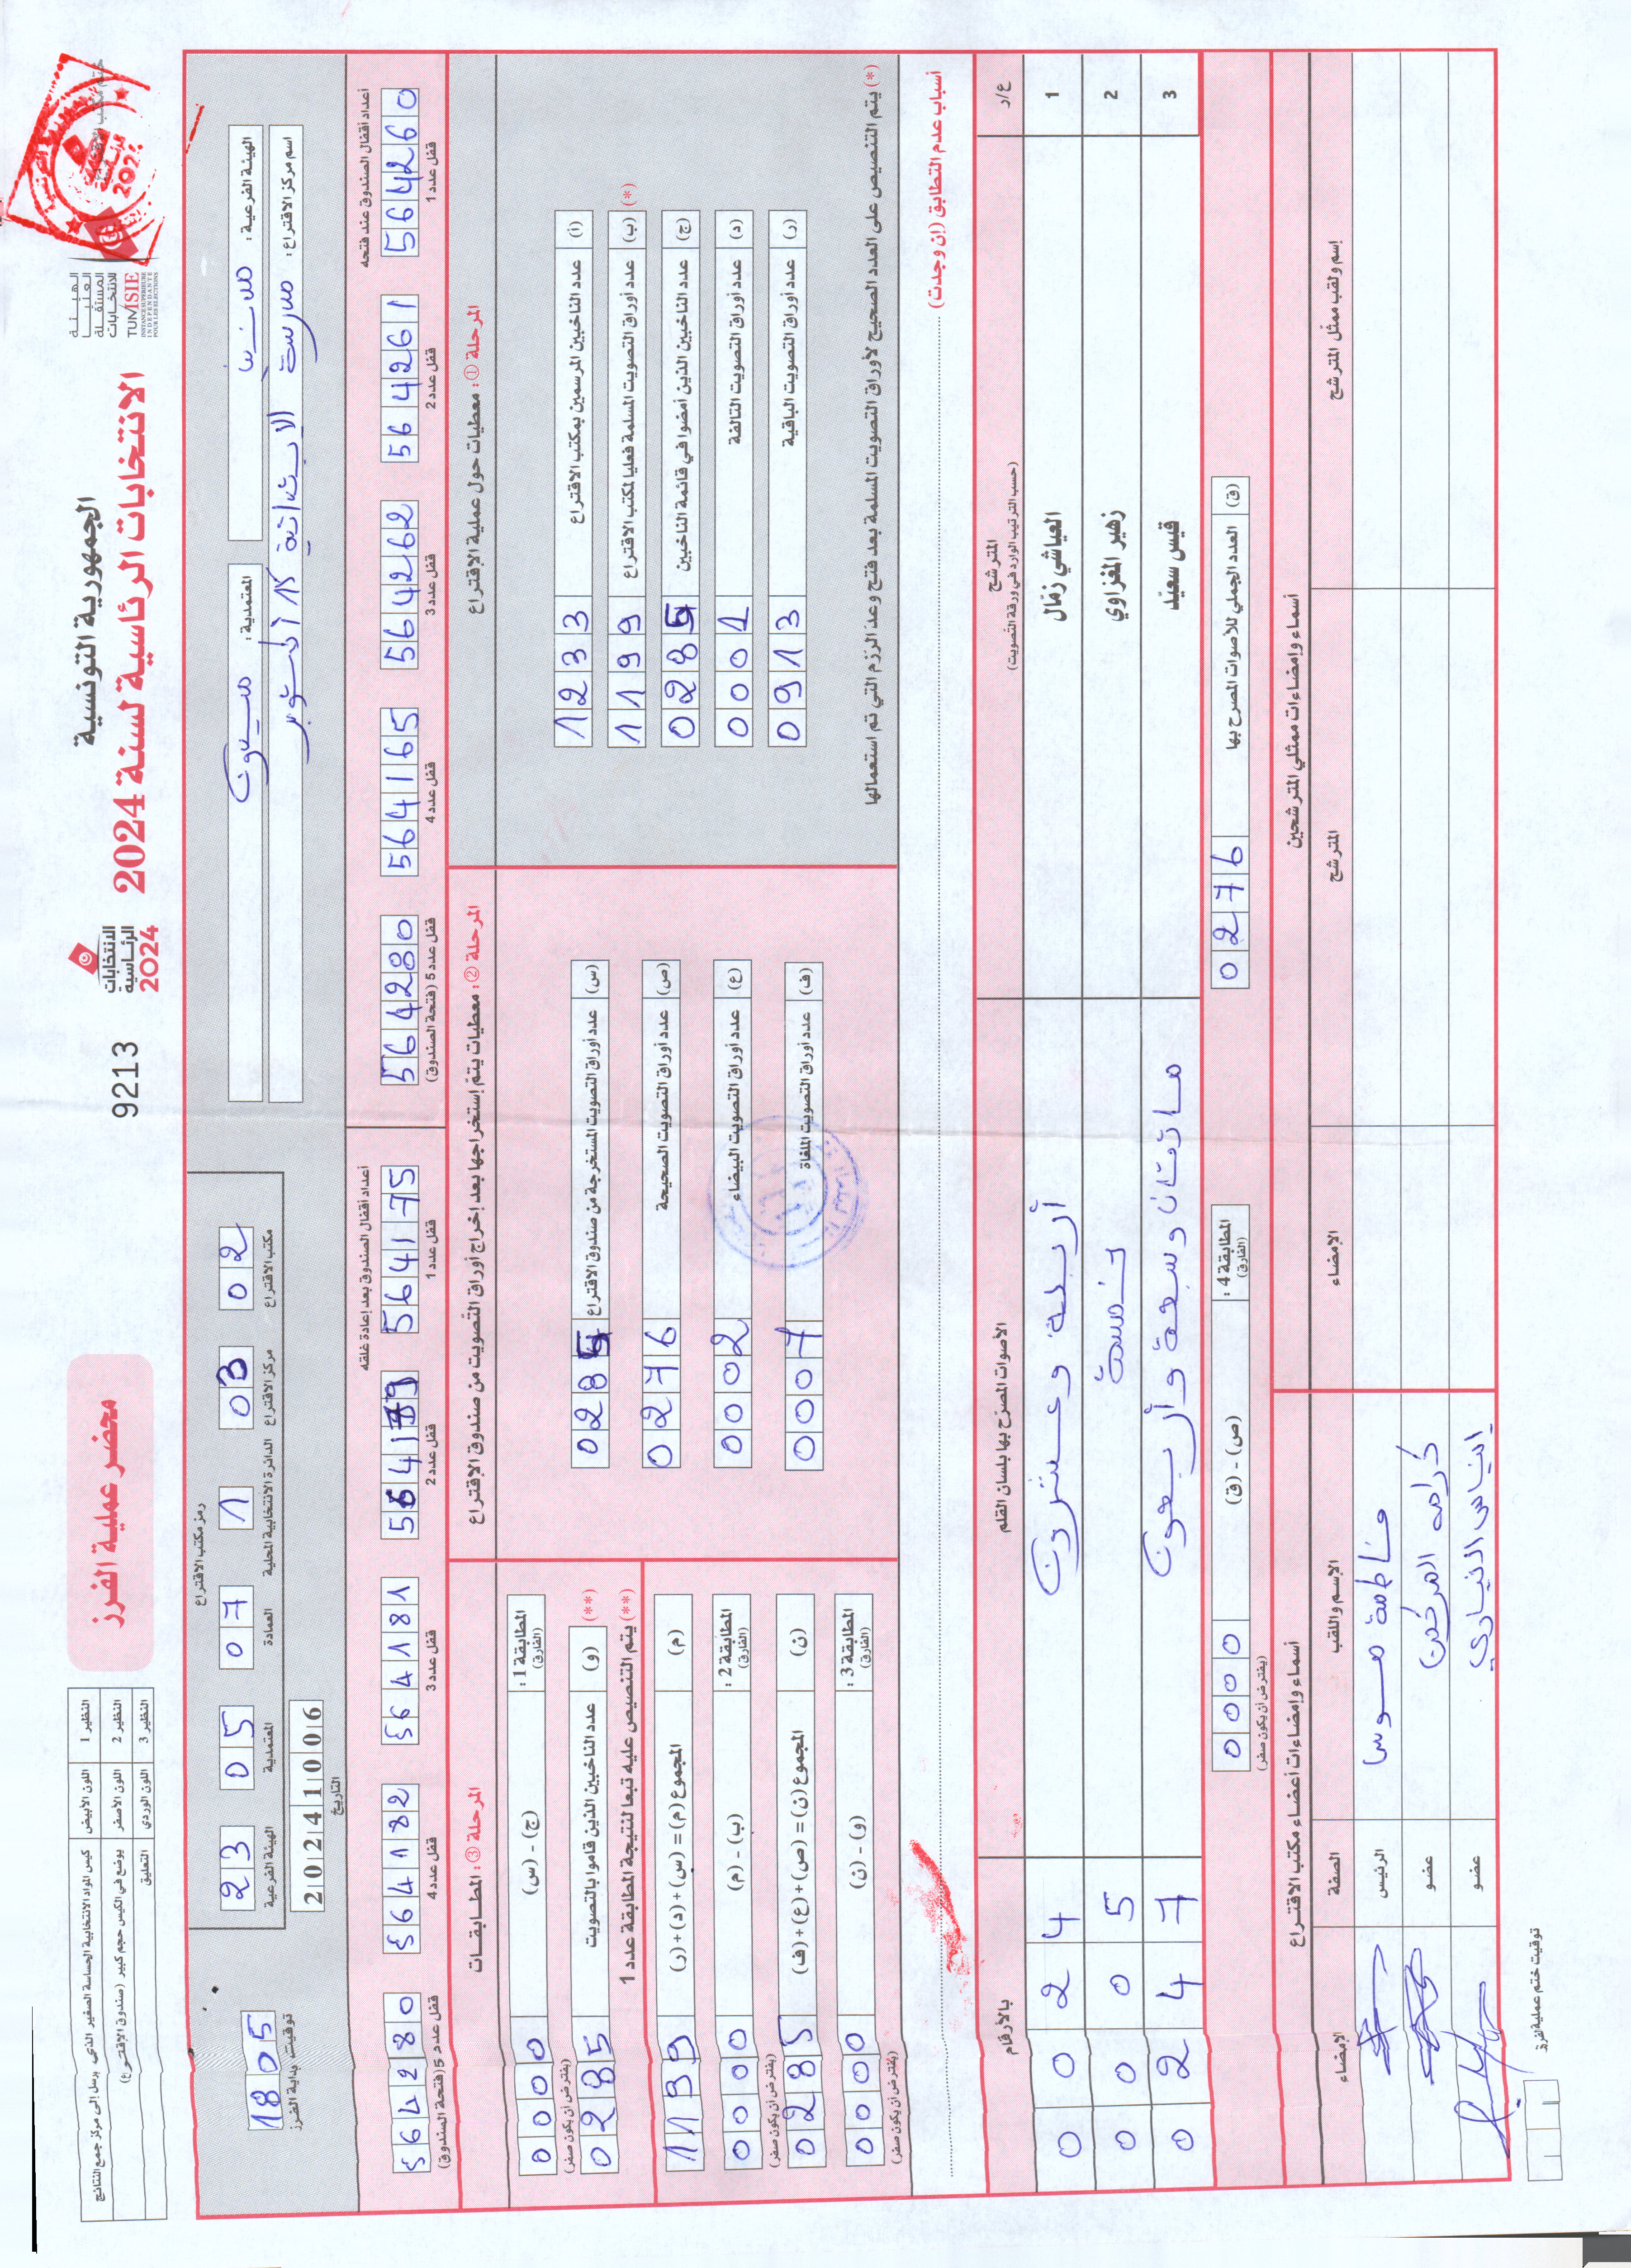 الجمهورية التونسية
الانتخابات الرئاسية لسنة 2024
الهيئة
العليا
المستقلة
للانتخابات
TUNISIE
INSTANCE SUPERIEURE
INDEPENDANTE
POUR LES ELECTIONS
الانتخابات
الرئاسية
2024
9213
محضر عملية الفرز
النظير 1 اللون الأبيض كيس المواد الانتخابية الحساسة الصغير الذي يرسل إلى مركز جمع النتائج
النظير 2 اللون الأصفر يوضع في الكيس حجم كبير (صندوق الاقتراع)
النظير 3 اللون الوردي التعليق
الهيئة الفرعية :
المعتمدية :
اسم مركز الاقتراع : مدرسة الابتدائية 15 أكتوبر
رمز مكتب الاقتراع
23 05 07 1 03 02
الهيئة الفرعية المعتمدية العمادة الدائرة الانتخابية المحلية مركز الاقتراع مكتب الاقتراع
20241006
التاريخ
1805
توقيت بداية الفرز
أعداد أقفال الصندوق عند فتحه
564260 564261 564262 564165 564280
قفل عدد 1 قفل عدد 2 قفل عدد 3 قفل عدد 4 قفل عدد 5 (فتحة الصندوق)
أعداد أقفال الصندوق بعد إعادة غلقه
564175 564181 564182 564280
قفل عدد 1 قفل عدد 2 قفل عدد 3 قفل عدد 4 قفل عدد 5 (فتحة الصندوق)
المرحلة ① : معطيات حول عملية الاقتراع
(أ) عدد الناخبين المرسمين بمكتب الاقتراع 1233
(*) (ب) عدد أوراق التصويت المسلمة فعليا لمكتب الاقتراع 1199
(ج) عدد الناخبين الذين أمضوا في قائمة الناخبين 0285
(د) عدد أوراق التصويت التالفة 0001
(ر) عدد أوراق التصويت الباقية 0913
(*) يتم التنصيص على العدد الصحيح لأوراق التصويت المسلمة بعد فتح وعدّ الرزم التي تم استعمالها
المرحلة ② : معطيات يتمّ إستخراجها بعد إخراج أوراق التصويت من صندوق الاقتراع
(س) عدد أوراق التصويت المستخرجة من صندوق الاقتراع 0285
(ص) عدد أوراق التصويت الصحيحة 0276
(ع) عدد أوراق التصويت البيضاء 0002
(ف) عدد أوراق التصويت الملغاة 0007
المرحلة ③ : المطابقات
المطابقة 1 : (الفارق) (ج) - (س) 0000
(يفترض أن يكون صفر)
(**) (و) عدد الناخبين الذين قاموا بالتصويت 0285
(**) يتم التنصيص عليه تبعا لنتيجة المطابقة عدد 1
(م) المجموع (م) = (س) + (د) + (ر) 1199
المطابقة 2 : (الفارق) (ب) - (م) 0000
(يفترض أن يكون صفر)
(ن) المجموع (ن) = (ص) + (ع) + (ف) 0285
المطابقة 3 : (الفارق) (و) - (ن) 0000
(يفترض أن يكون صفر)
أسباب عدم التطابق (إن وجدت)
ع/ر المترشح الأصوات المصرّح بها بلسان القلم بالأرقام
(حسب الترتيب الوارد في ورقة التصويت)
1 العياشي زمّال أربعة وعشرون 0024
2 زهير المغزاوي خمسة 0005
3 قيس سعيّد مائتان وسبعة وأربعون 0247
(ق) العدد الجملي للأصوات المصرح بها 0276
المطابقة 4 : (الفارق) (ص) - (ق) 0000
(يفترض أن يكون صفر)
أسماء وإمضاءات ممثلي المترشحين
إسم ولقب ممثل المترشح المترشح الإمضاء
أسماء وإمضاءات أعضاء مكتب الاقتراع
الإسم واللقب الصفة الإمضاء
فاطمة الرئيس
عضو
عضو
توقيت ختم عملية الفرز